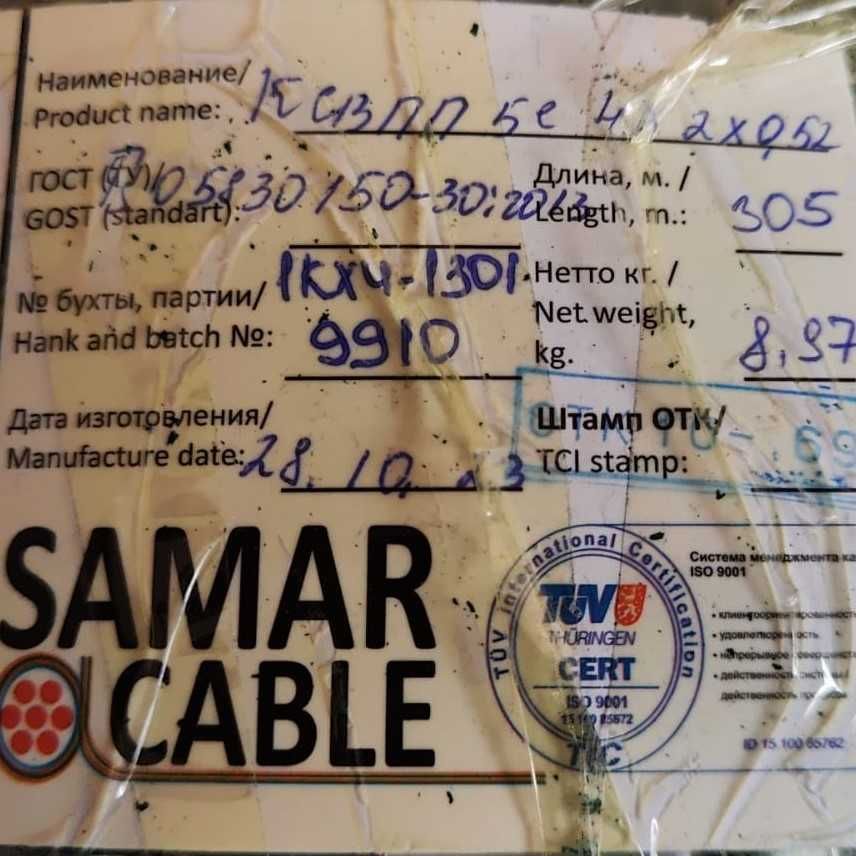 Наименование/
Product name: КСВПП 5е 4х2х0,52
ГОСТ (ТУ)/
GOST (standart): 05830150-30:2013
Длина, м. /
Length, m.: 305
№ бухты, партии/ 1КХЧ-1301
Hank and batch №: 9910
Нетто кг. /
Net weight,
kg. 8,97
Дата изготовления/
Manufacture date: 28.10. 23
Штамп ОТК/
TCI stamp:
SAMARA
CABLE
TÜV International Certification
TÜV
THÜRINGEN
CERT
ISO 9001
TIC
Система менеджмента
ISO 9001
• клиентоориентированность
• удовлетворенность
• непрерывное
• действенность системы
действенность
ID 15 100 65762